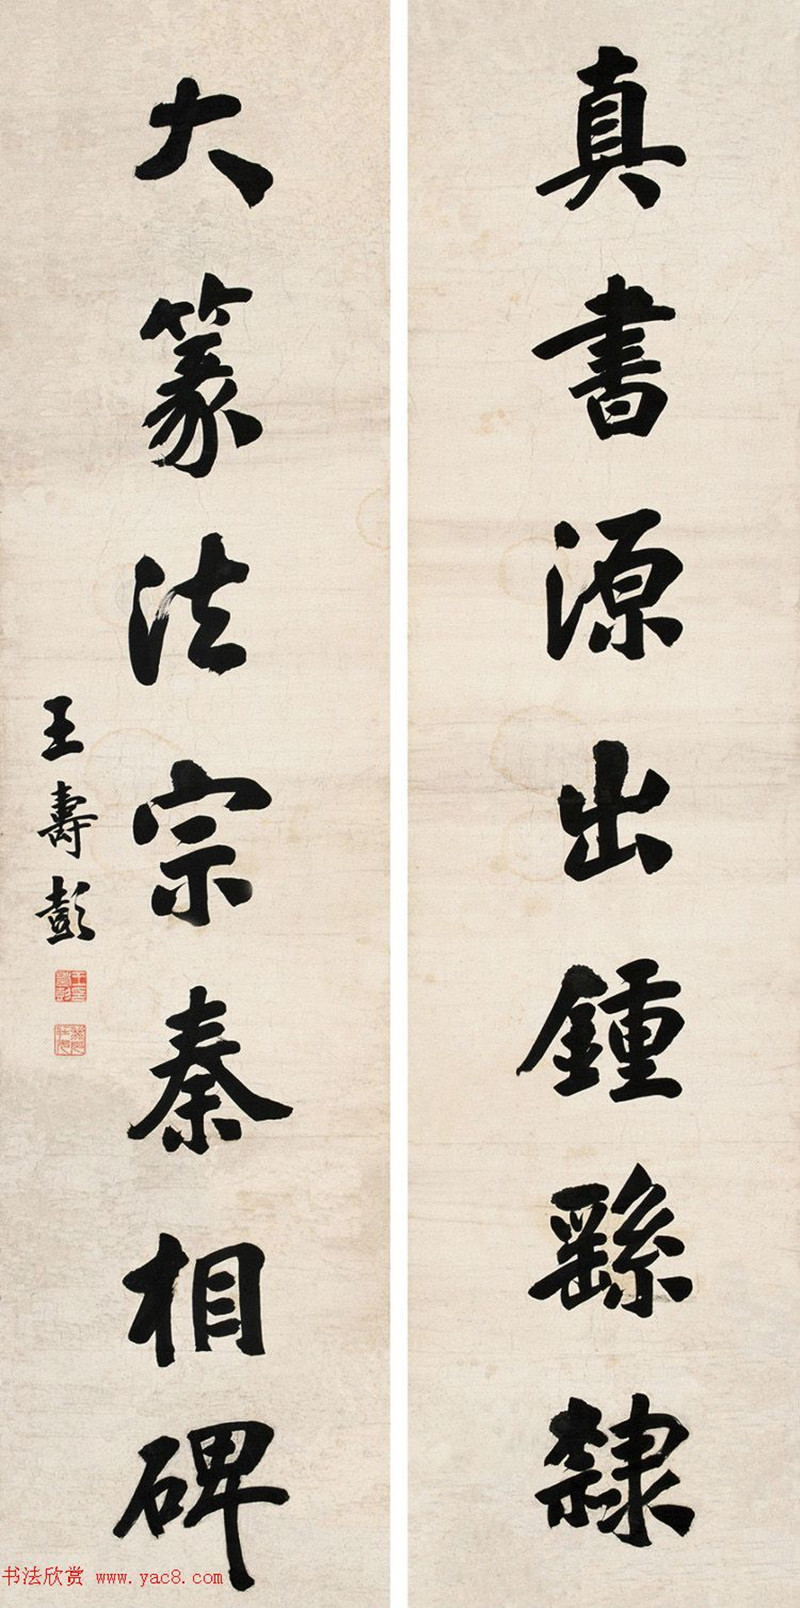 真書源出鍾繇隸
大篆法宗秦相碑
王壽彭
书法欣赏 www.yac8.com